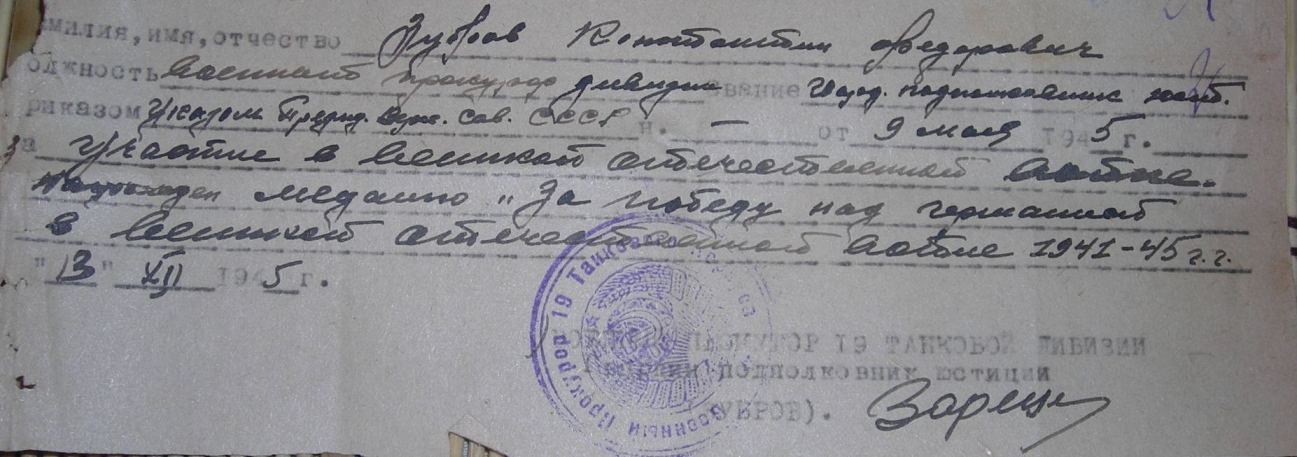 милия, имя, отчество Зубров Константин Федорович
олжность Военный прокурор дивизии звание Гвард. подполковник юст.
риказом Указом Презид. Верх. Сов. СССР н. — от 9 мая 1945 г.
за Участие в великой отечественной войне.
награжден медалью „За победу над германией
в великой отечественной войне 1941-45 г.г.
"13" XII 1945 г.
ПРОКУРОР 19 ТАНКОВОЙ ДИВИЗИИ
подполковник юстиции
УБРОВ).
Военный Прокурор 19 Танковой